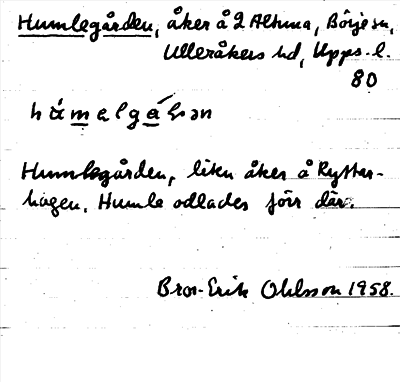 Humlegården, åker å 2 Altuna, Börje sn,
Ulleråkers hd, Upps. l.
80
Humlegården, liten åker å Ryttar-
hagen. Humle odlades förr där.
Bror-Erik Ohlsson 1958.